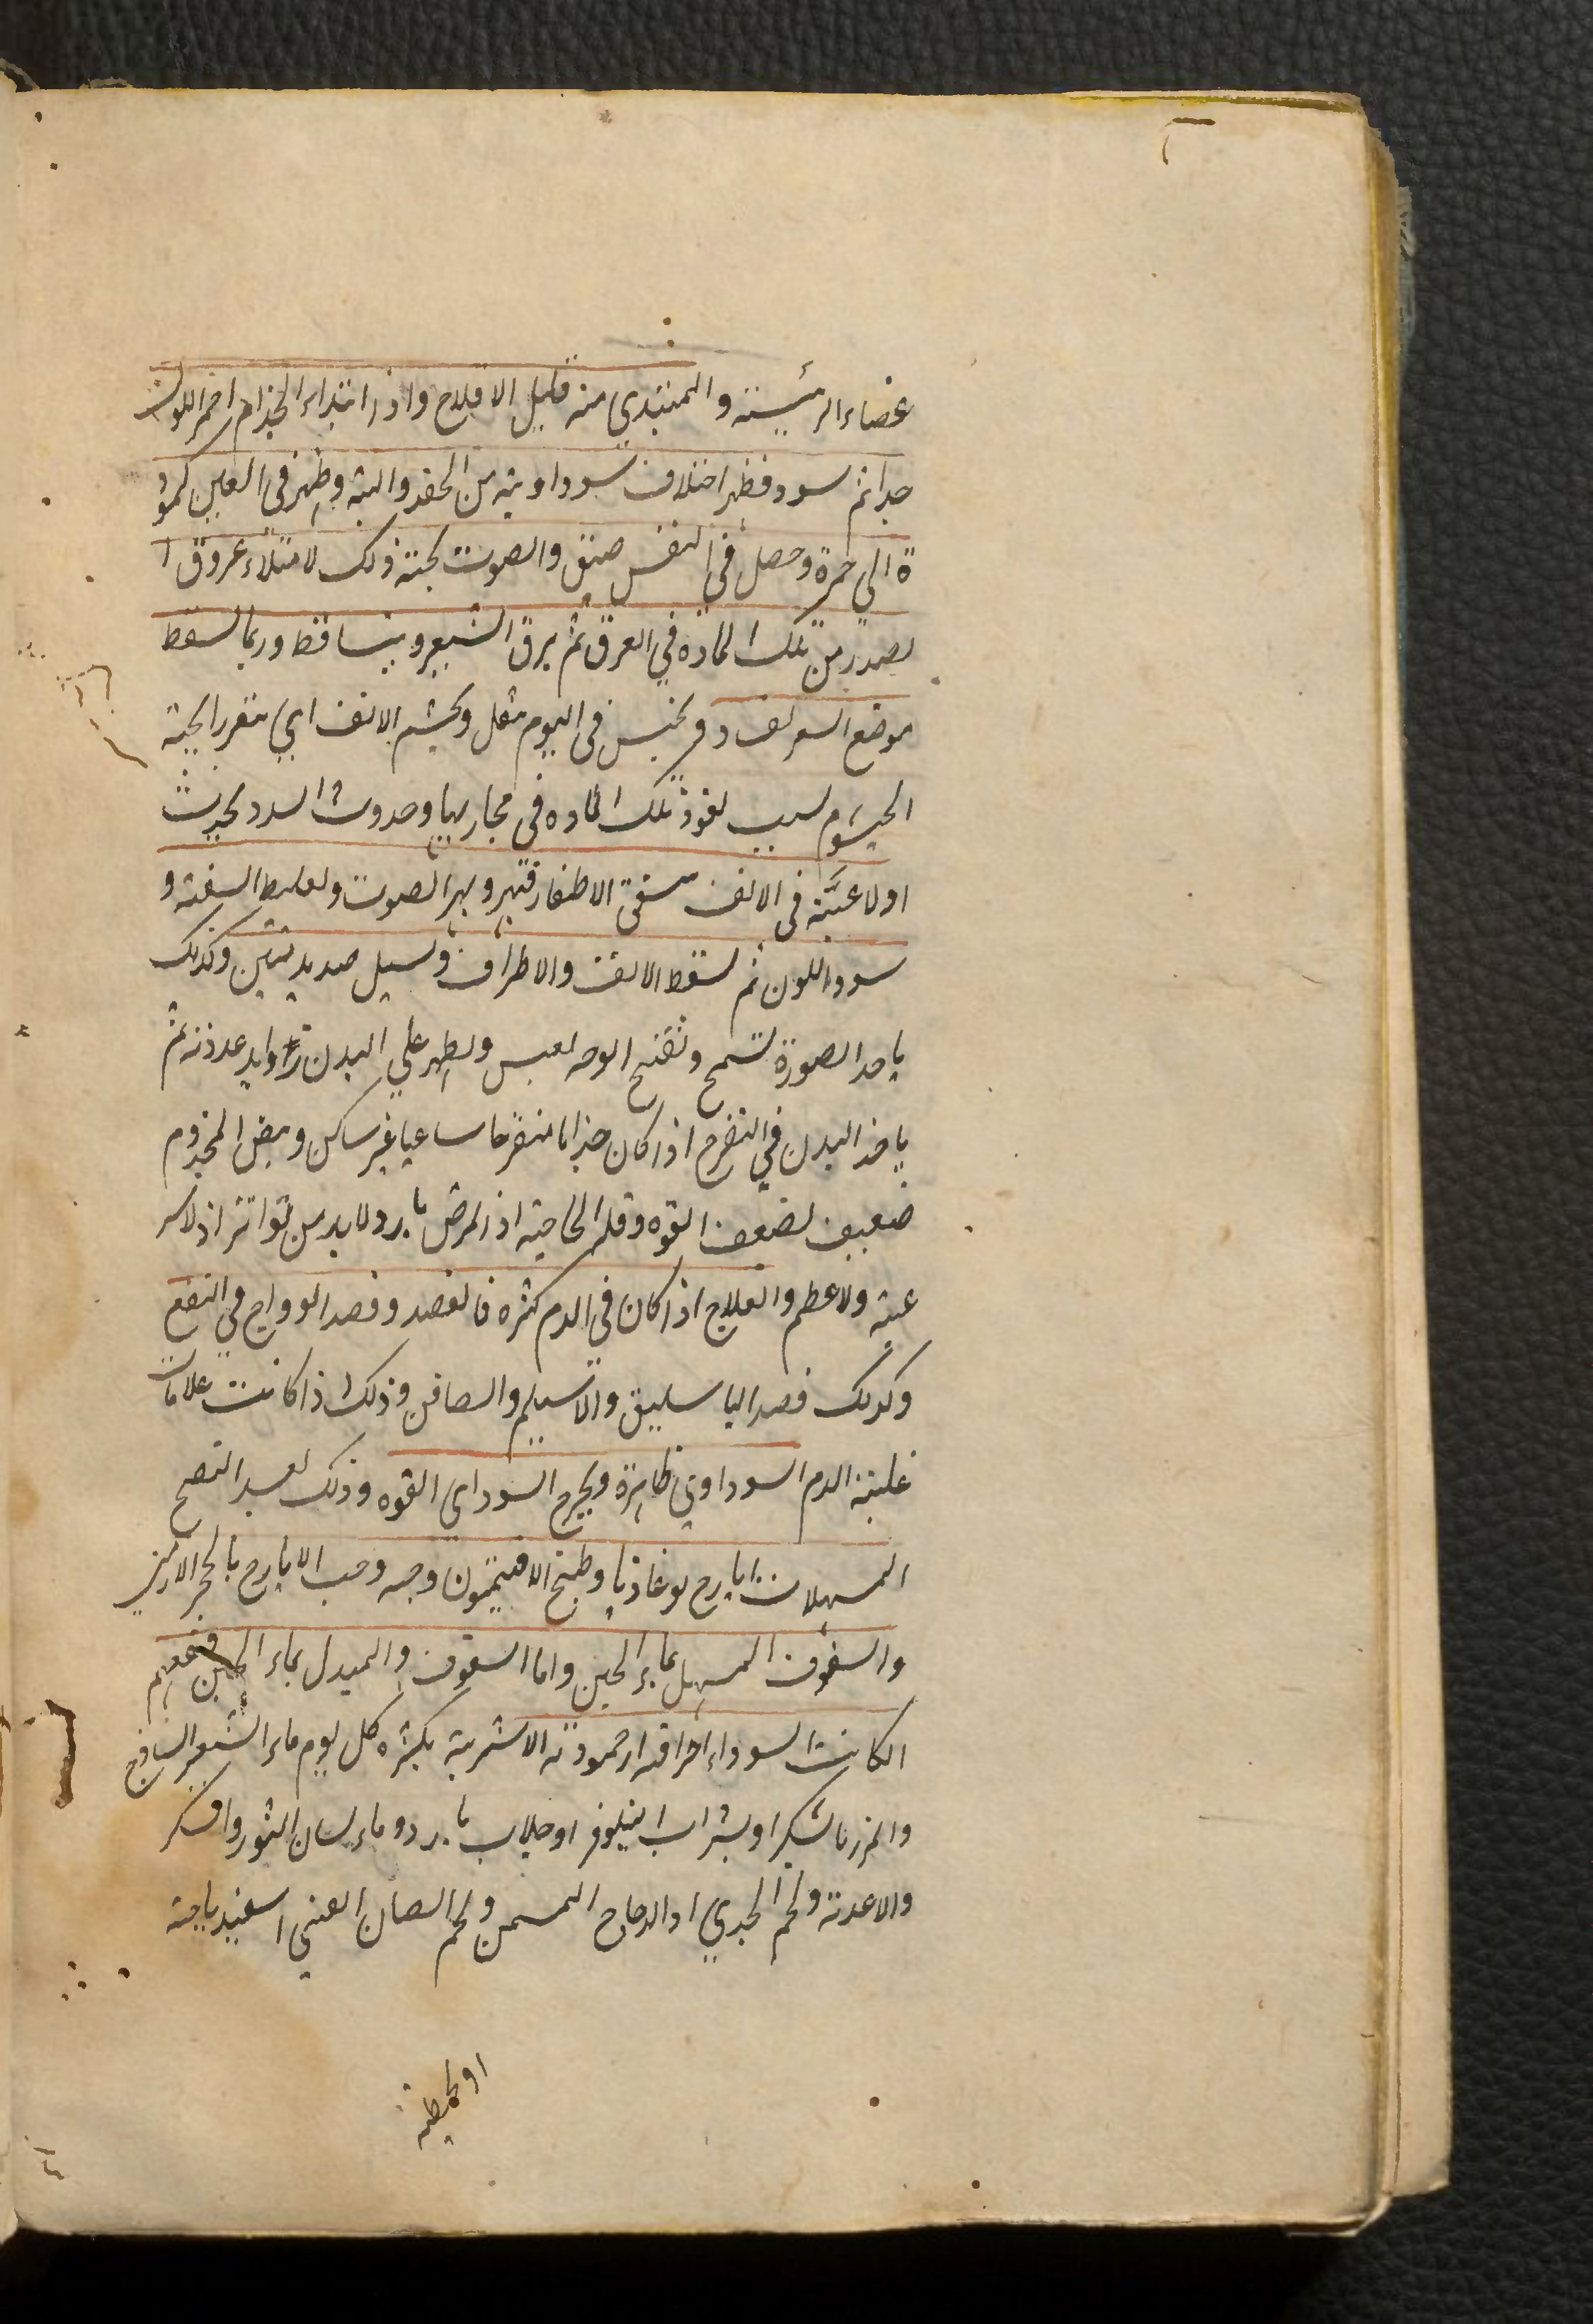 عضاء الرئيسة والمبتدي منه قليل الافلاح واذا ابتداء الجذام احمر اللون
جدا ثم سود فظهر اخلاق سوداوية من الحقد والتيه وظهر في العين كمود
ة الي حمرة وحصل في النفس ضيق والصوت بحته ذلك لامتلاء عروق ا
لصدر من تلك المادة في العرق ثم يرق الشعر ويتساقط وربما لسقط
موضع السر في النوم ثقل وبخشم الانف اي تتغير الجية
الخيشوم لسبب نفوذ تلك المادة في مجاريها وحدوث السدد بحيث
اولا غنة في الانف شقق الاظفار الصوت ولغليظ الشفة و
سود اللون ثم لسقط الانف والاطراف ولسيل صديد منتن وكذلك
ياخذ الصورة تسمج وتقبح الوجه لعبس ولظهر علي البدن زوايد غددية ثم
ياخذ البدن في التقرح اذا كان جذاما متقرحا ساعيا غير ساكن ونبض المجذوم
ضعيف لضعف القوة وقلة الحاجة اذ المرض بارد ولا بد من تواتر اذ لا سر
عة ولا عظم والعلاج اذا كان في الدم كثرة فالفصد وفصد الوداج في النفع
وكذلك فصد الباسليق والاسيلم والصافن وذلك اذا كانت علامات
غلبة الدم السوداوي ظاهرة ويخرج السوداي القوة وذلك لعبد النضج
المسهلات ايارج لوغاذيا وطبخ الافتيمون وحبه وحب الايارج بالحجر الارمني
والسفوف المسهل بماء الجبن واما السفوف والمبدل بماء الجبن فنفعهم
الكانت السوداء احراقية او حمودته الاشربة بكثره كل يوم ماء الشعير الساذج
والمزر بالسكر او بشراب النيلوفر او جلاب بارد وماء لسان الثور والسكر
والاغذية ولحم الجدي او الدجاج المسمن ولحم الضان الفتي اسفيدباجة
او لحطية